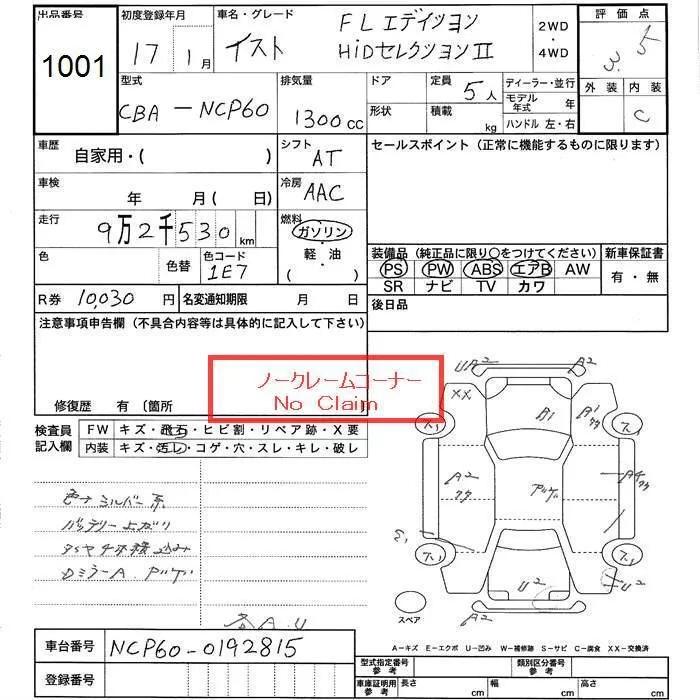 出品番号
1001
初度登録年月
17 1月
車名・グレード
イスト
FLエディション
HiDセレクションⅡ
2WD
・
4WD
評価点
3.5
外装 内装
C
型式
CBA-NCP60
排気量
1300cc
ドア
形状
定員
5人
積載
kg
ディーラー・並行
モデル年式 年
ハンドル 左・右
車歴
自家用・( )
シフト
AT
セールスポイント(正常に機能するものに限ります)
車検
年 月( 日)
冷房
AAC
走行
9万2千530km
燃料
ガソリン
・
軽・油
( )
色
色替
色コード
1E7
装備品(純正品に限り〇をつけてください)
PS PW ABS エアB AW
SR ナビ TV カワ
新車保証書
有・無
R券 10,030円
名変通知期限 月 日
後日品
注意事項申告欄(不具合内容等は具体的に記入して下さい)
ノークレームコーナー
No Claim
修復歴 有〔箇所
検査員
記入欄
FW キズ・飛石・ヒビ割・リペア跡・X要
内装 キズ・汚レ・コゲ・穴・スレ・キレ・破レ
シルバー系
バッテリー上がり
DミラーA
U2 A2
XX
B1
B1
A2
A4
U2
U2
A2
スペア
A-キズ E-エクボ U-凹み W-補修跡 S-サビ C-腐食 XX-交換済
車台番号
NCP60-0192815
登録番号
型式指定番号
参考
類別区分番号
参考
車庫証明用
参考
長さ cm
幅 cm
高さ cm